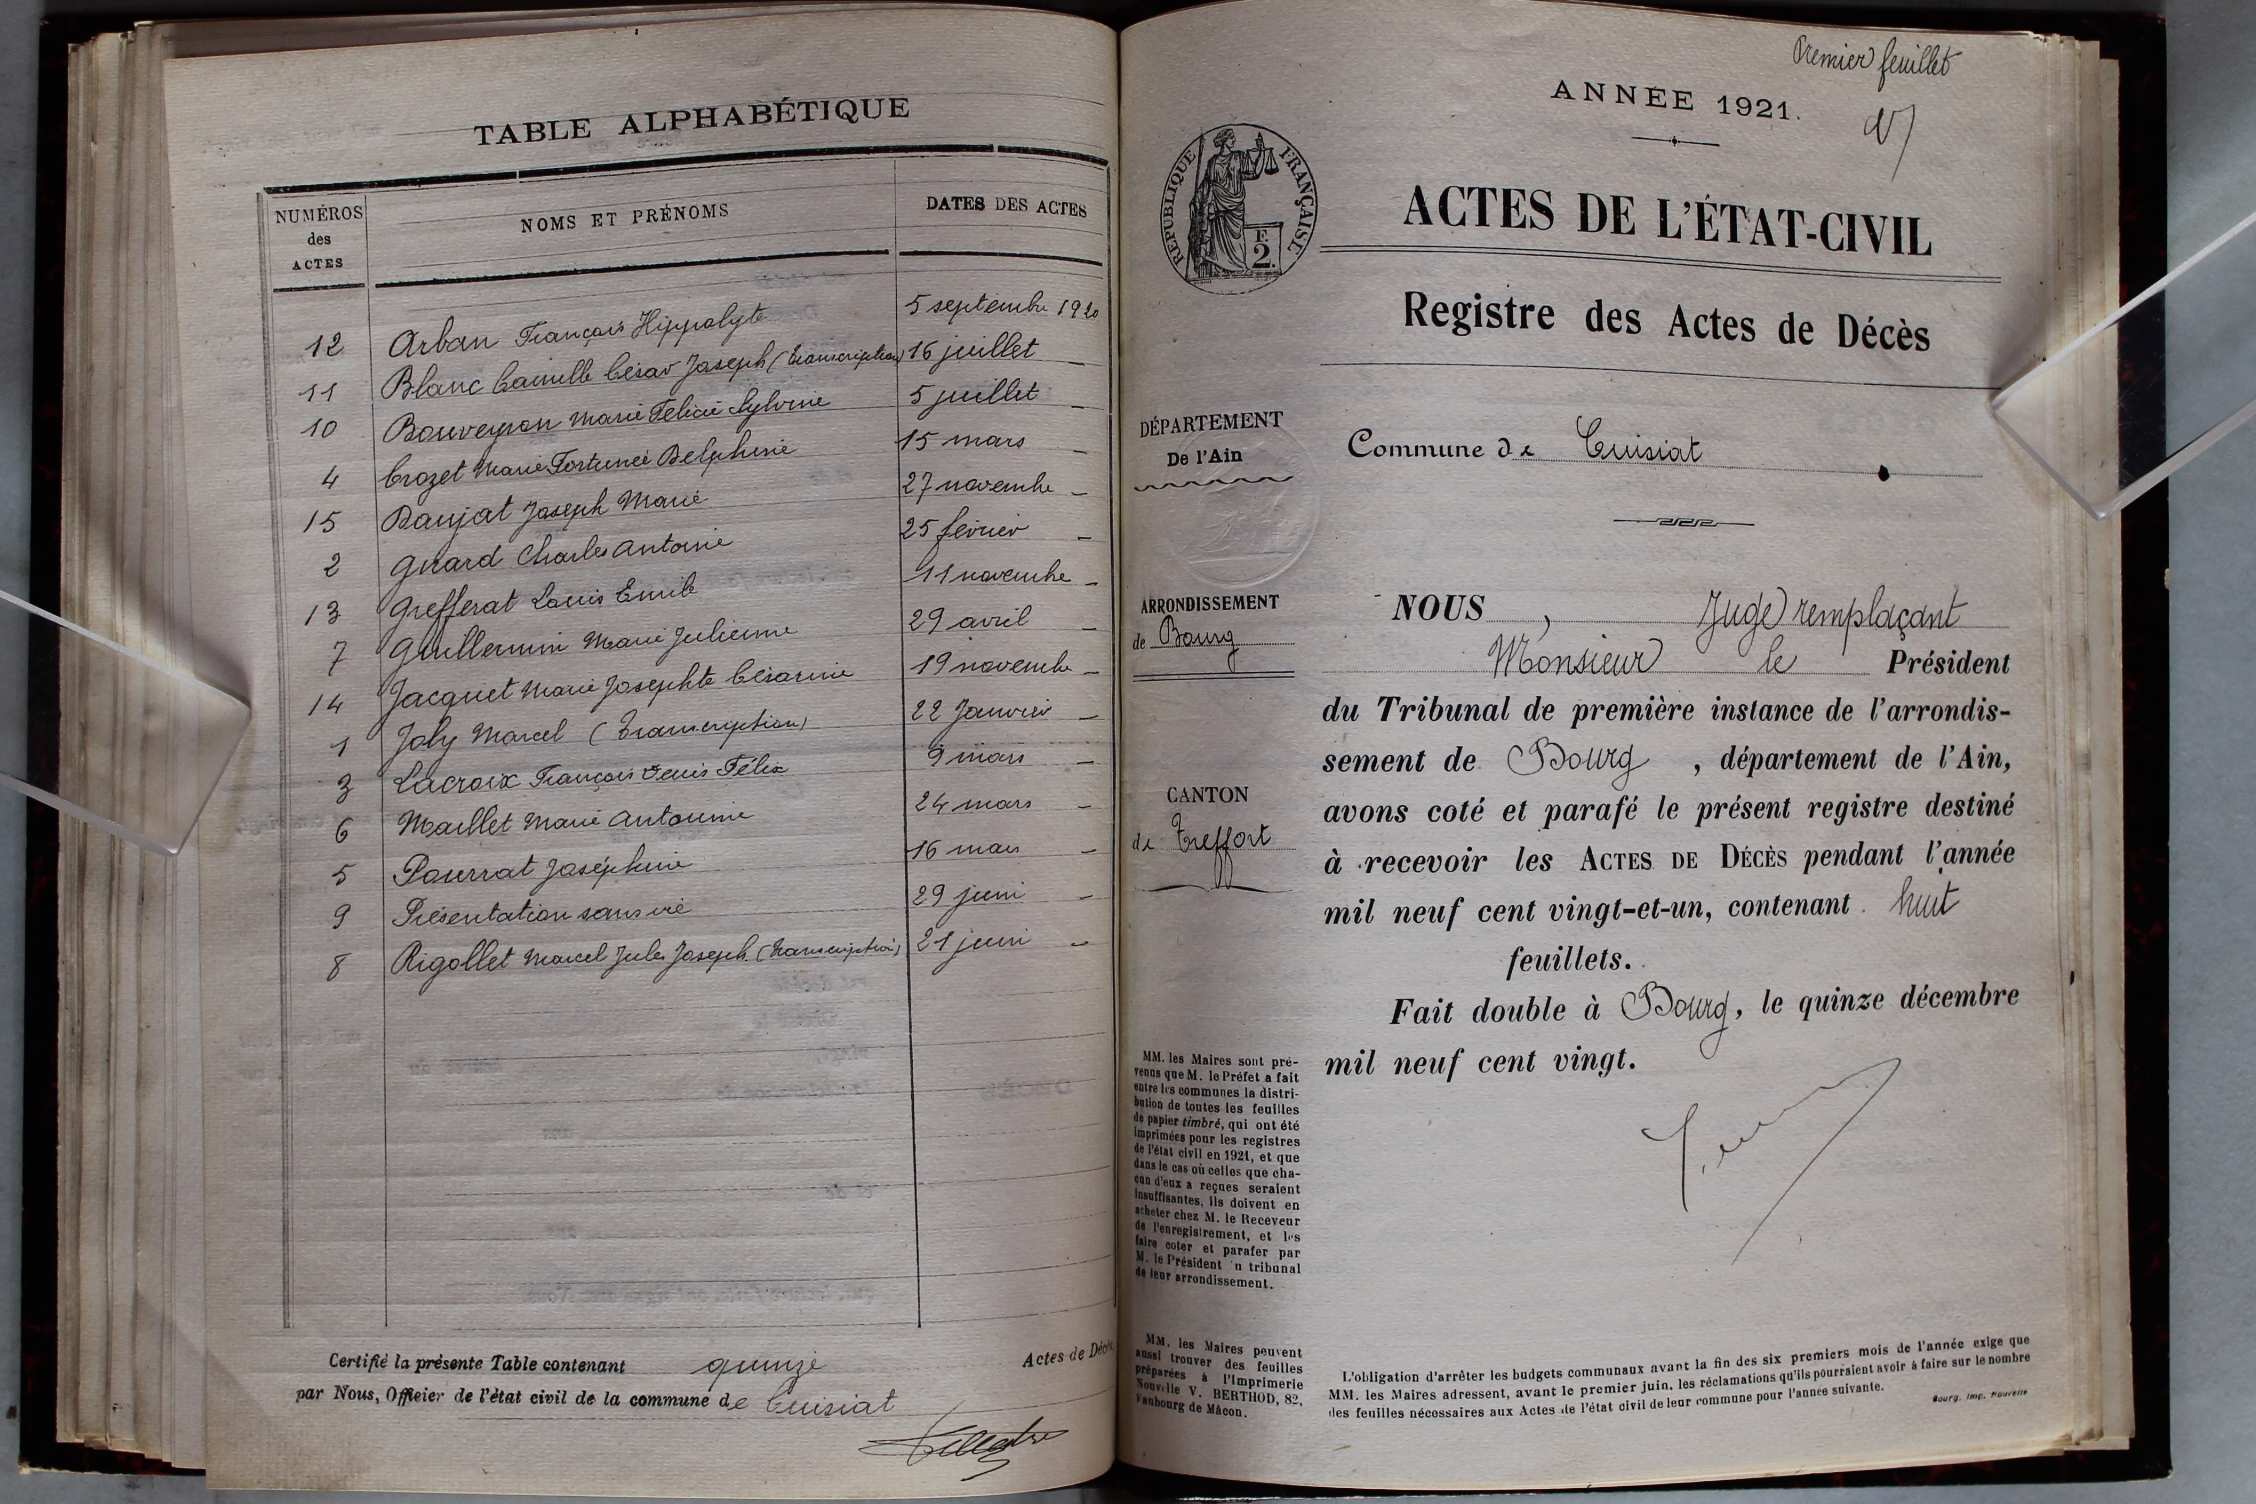 TABLE ALPHABÉTIQUE
NUMÉROS des ACTES
NOMS ET PRÉNOMS
DATES DES ACTES
12 Arban François Hippolyte 5 septembre 1920
11 Blanc Camille César Joseph (transcription) 16 juillet _
10 Bouveyron Marie Félicie Sylvinie 5 juillet _
4 Crozet Marie Fortunée Delphine 15 mars _
15 Danjat Joseph Marie 27 novembre _
2 Girard Charles Antoine 25 février _
13 Grefferat Louis Emile 11 novembre _
7 Guillermin Marie Julienne 29 avril _
14 Jacquet Marie Josephte Césarine 19 novembre _
1 Joly Marcel (Transcription) 22 Janvier _
3 Lacroix François Denis Félix 9 mars _
6 Maillet Marie Antoinie 24 mars _
5 Pourrat Joséphine 16 mars _
9 Présentation sans vie 29 juin _
8 Rigollet Marcel Jules Joseph (transcription) 21 juin _
Certifié la présente Table contenant quinze Actes de Décès
par Nous, Officier de l'état civil de la commune de Cuisiat
Premier feuillet
ANNÉE 1921.
RÉPUBLIQUE FRANÇAISE
F.
2.
ACTES DE L'ÉTAT-CIVIL
Registre des Actes de Décès
DÉPARTEMENT
De l'Ain
Commune de Cuisiat
ARRONDISSEMENT
de Bourg
CANTON
de Treffort
NOUS, Juge remplaçant
Monsieur le Président
du Tribunal de première instance de l'arrondis-
sement de Bourg, département de l'Ain,
avons coté et parafé le présent registre destiné
à recevoir les ACTES DE DÉCÈS pendant l'année
mil neuf cent vingt-et-un, contenant huit
feuillets.
Fait double à Bourg, le quinze décembre
mil neuf cent vingt.
MM. les Maires sont pré-
venus que M. le Préfet a fait
entre les communes la distri-
bution de toutes les feuilles
de papier timbré, qui ont été
imprimées pour les registres
de l'état civil en 1921, et que
dans le cas où celles que cha-
cun d'eux a reçues seraient
insuffisantes, ils doivent en
acheter chez M. le Receveur
de l'enregistrement, et les
faire coter et parafer par
M. le Président du tribunal
de leur arrondissement.
MM. les Maires peuvent
aussi trouver des feuilles
préparées à l'Imprimerie
Nouvelle V. BERTHOD, 82,
Faubourg de Mâcon.
L'obligation d'arrêter les budgets communaux avant la fin des six premiers mois de l'année exige que
MM. les Maires adressent, avant le premier juin, les réclamations qu'ils pourraient avoir à faire sur le nombre
des feuilles nécessaires aux Actes de l'état civil de leur commune pour l'année suivante.
Bourg, Imp. Nouvelle